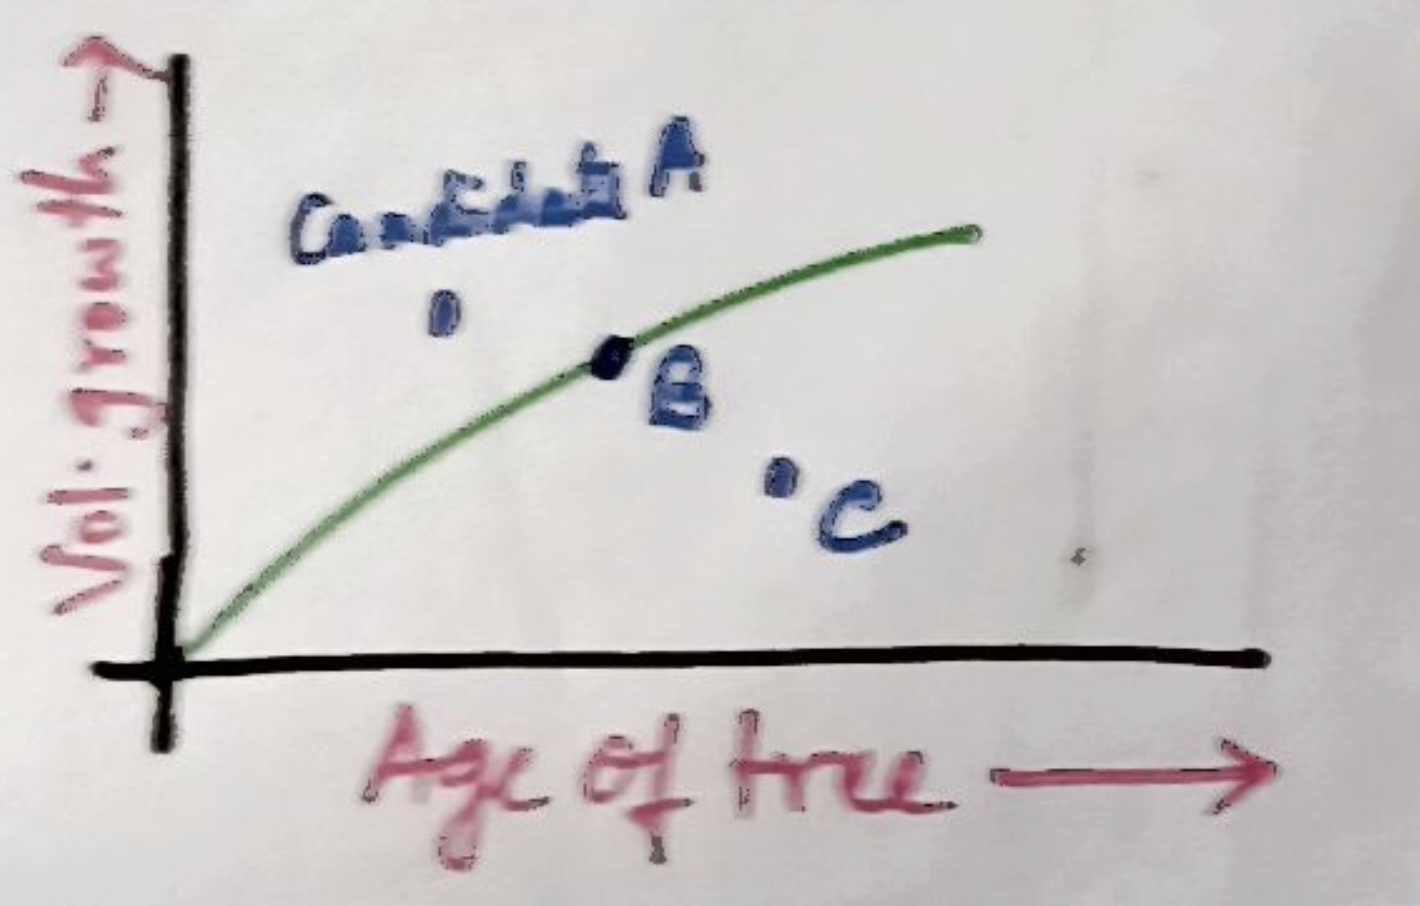 Vol. growth
Candidate A
B
C
Age of tree